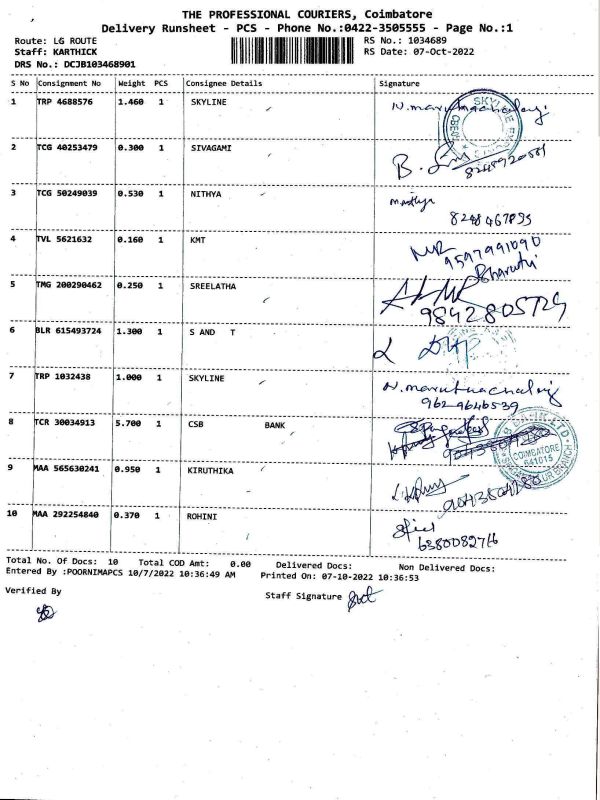 THE PROFESSIONAL COURIERS, Coimbatore
Delivery Runsheet - PCS - Phone No.:0422-3505555 - Page No.:1
Route: LG ROUTE RS No.: 1034689
Staff: KARTHICK RS Date: 07-Oct-2022
DRS No.: DCJB103468901
S No Consignment No Weight PCS Consignee Details Signature
1 TRP 4688576 1.460 1 SKYLINE
2 TCG 40253479 0.300 1 SIVAGAMI
3 TCG 50249039 0.530 1 NITHYA
8248467895
4 TVL 5621632 0.160 1 KMT
9597991090
Bharathi
5 TMG 200290462 0.250 1 SREELATHA
9842805729
6 BLR 615493724 1.300 1 S AND T
7 TRP 1032438 1.000 1 SKYLINE
962 9646539
8 TCR 30034913 5.700 1 CSB BANK
COIMBATORE
641015
9 MAA 565630241 0.950 1 KIRUTHIKA
10 MAA 292254840 0.370 1 ROHINI
6380082716
Total No. Of Docs: 10 Total COD Amt: 0.00 Delivered Docs: Non Delivered Docs:
Entered By :POORNIMAPCS 10/7/2022 10:36:49 AM Printed On: 07-10-2022 10:36:53
Verified By
Staff Signature